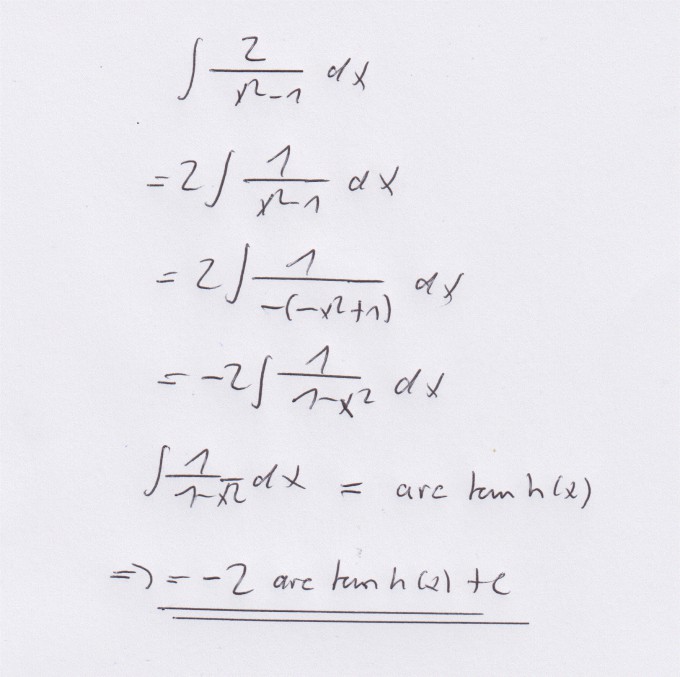 ∫ 2/(x²-1) dx
= 2 ∫ 1/(x²-1) dx
= 2 ∫ 1/(-(-x²+1)) dx
= -2 ∫ 1/(1-x²) dx
∫ 1/(1-x²) dx = arc tan h(x)
=> = -2 arc tan h(x) + c